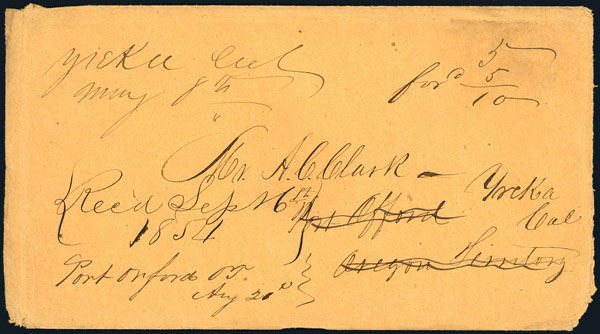 Yreka Cal
May 8th
for'd 5
5
10
Mr. A. C. Clark
Rec'd Sept 6th
1854
Port Orford
Oregon Territory
Yreka
Cal
Port Orford O.T.
Aug 20th